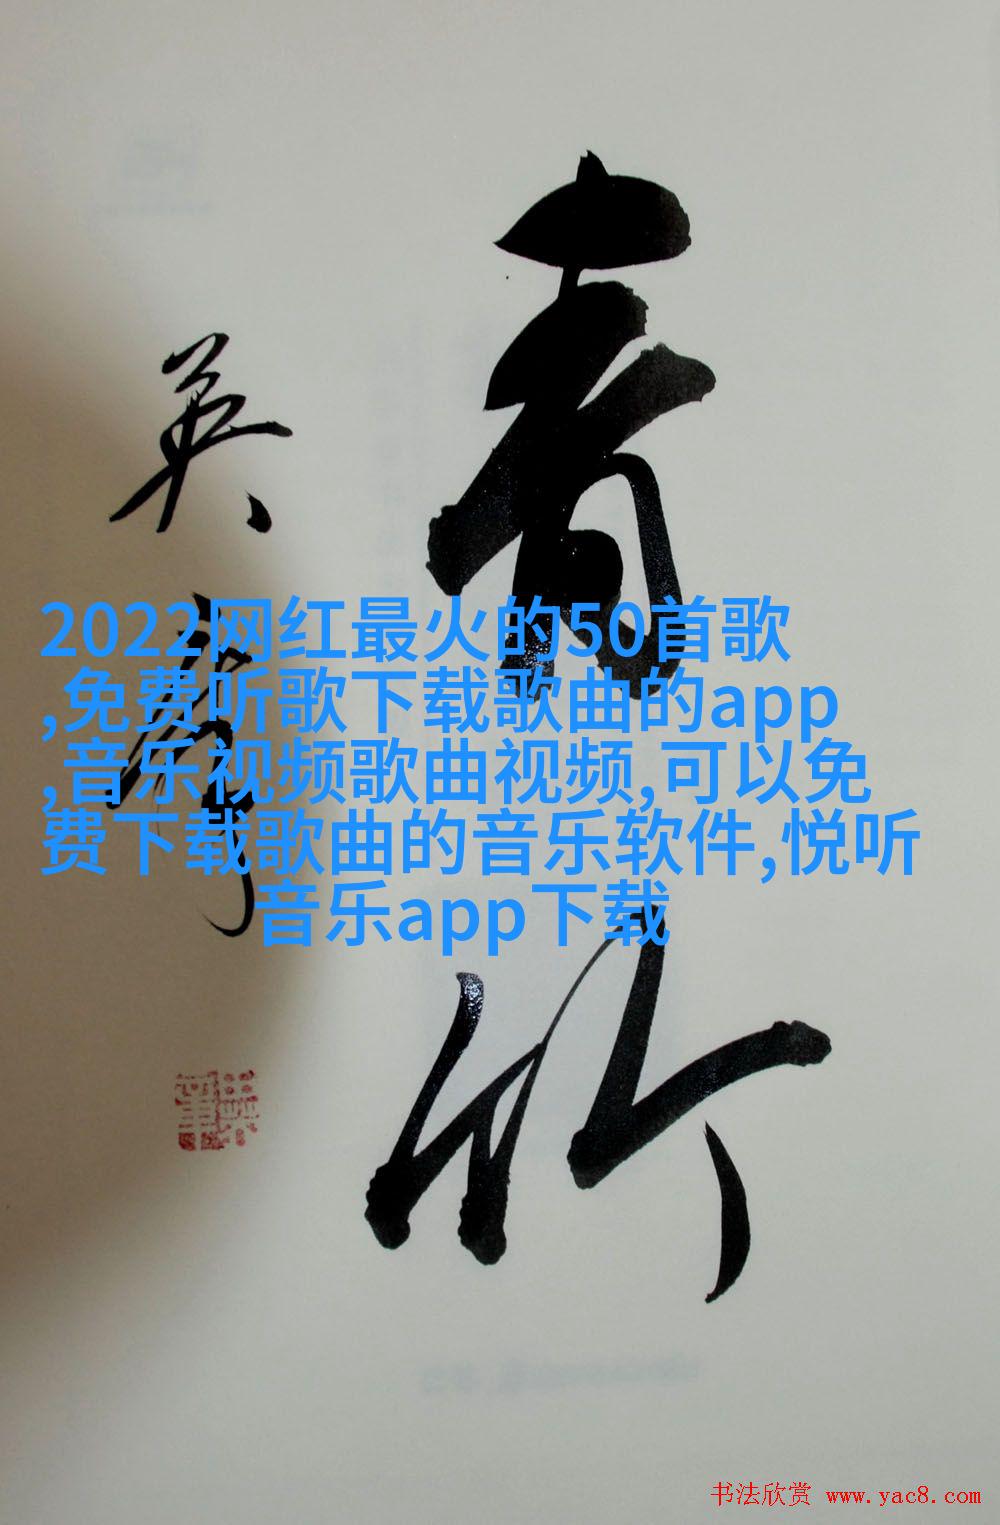 青竹
英
2022网红最火的50首歌
,免费听歌下载歌曲的app
,音乐视频歌曲视频,可以免
费下载歌曲的音乐软件,悦听
音乐app下载
书法欣赏 www.yac8.com